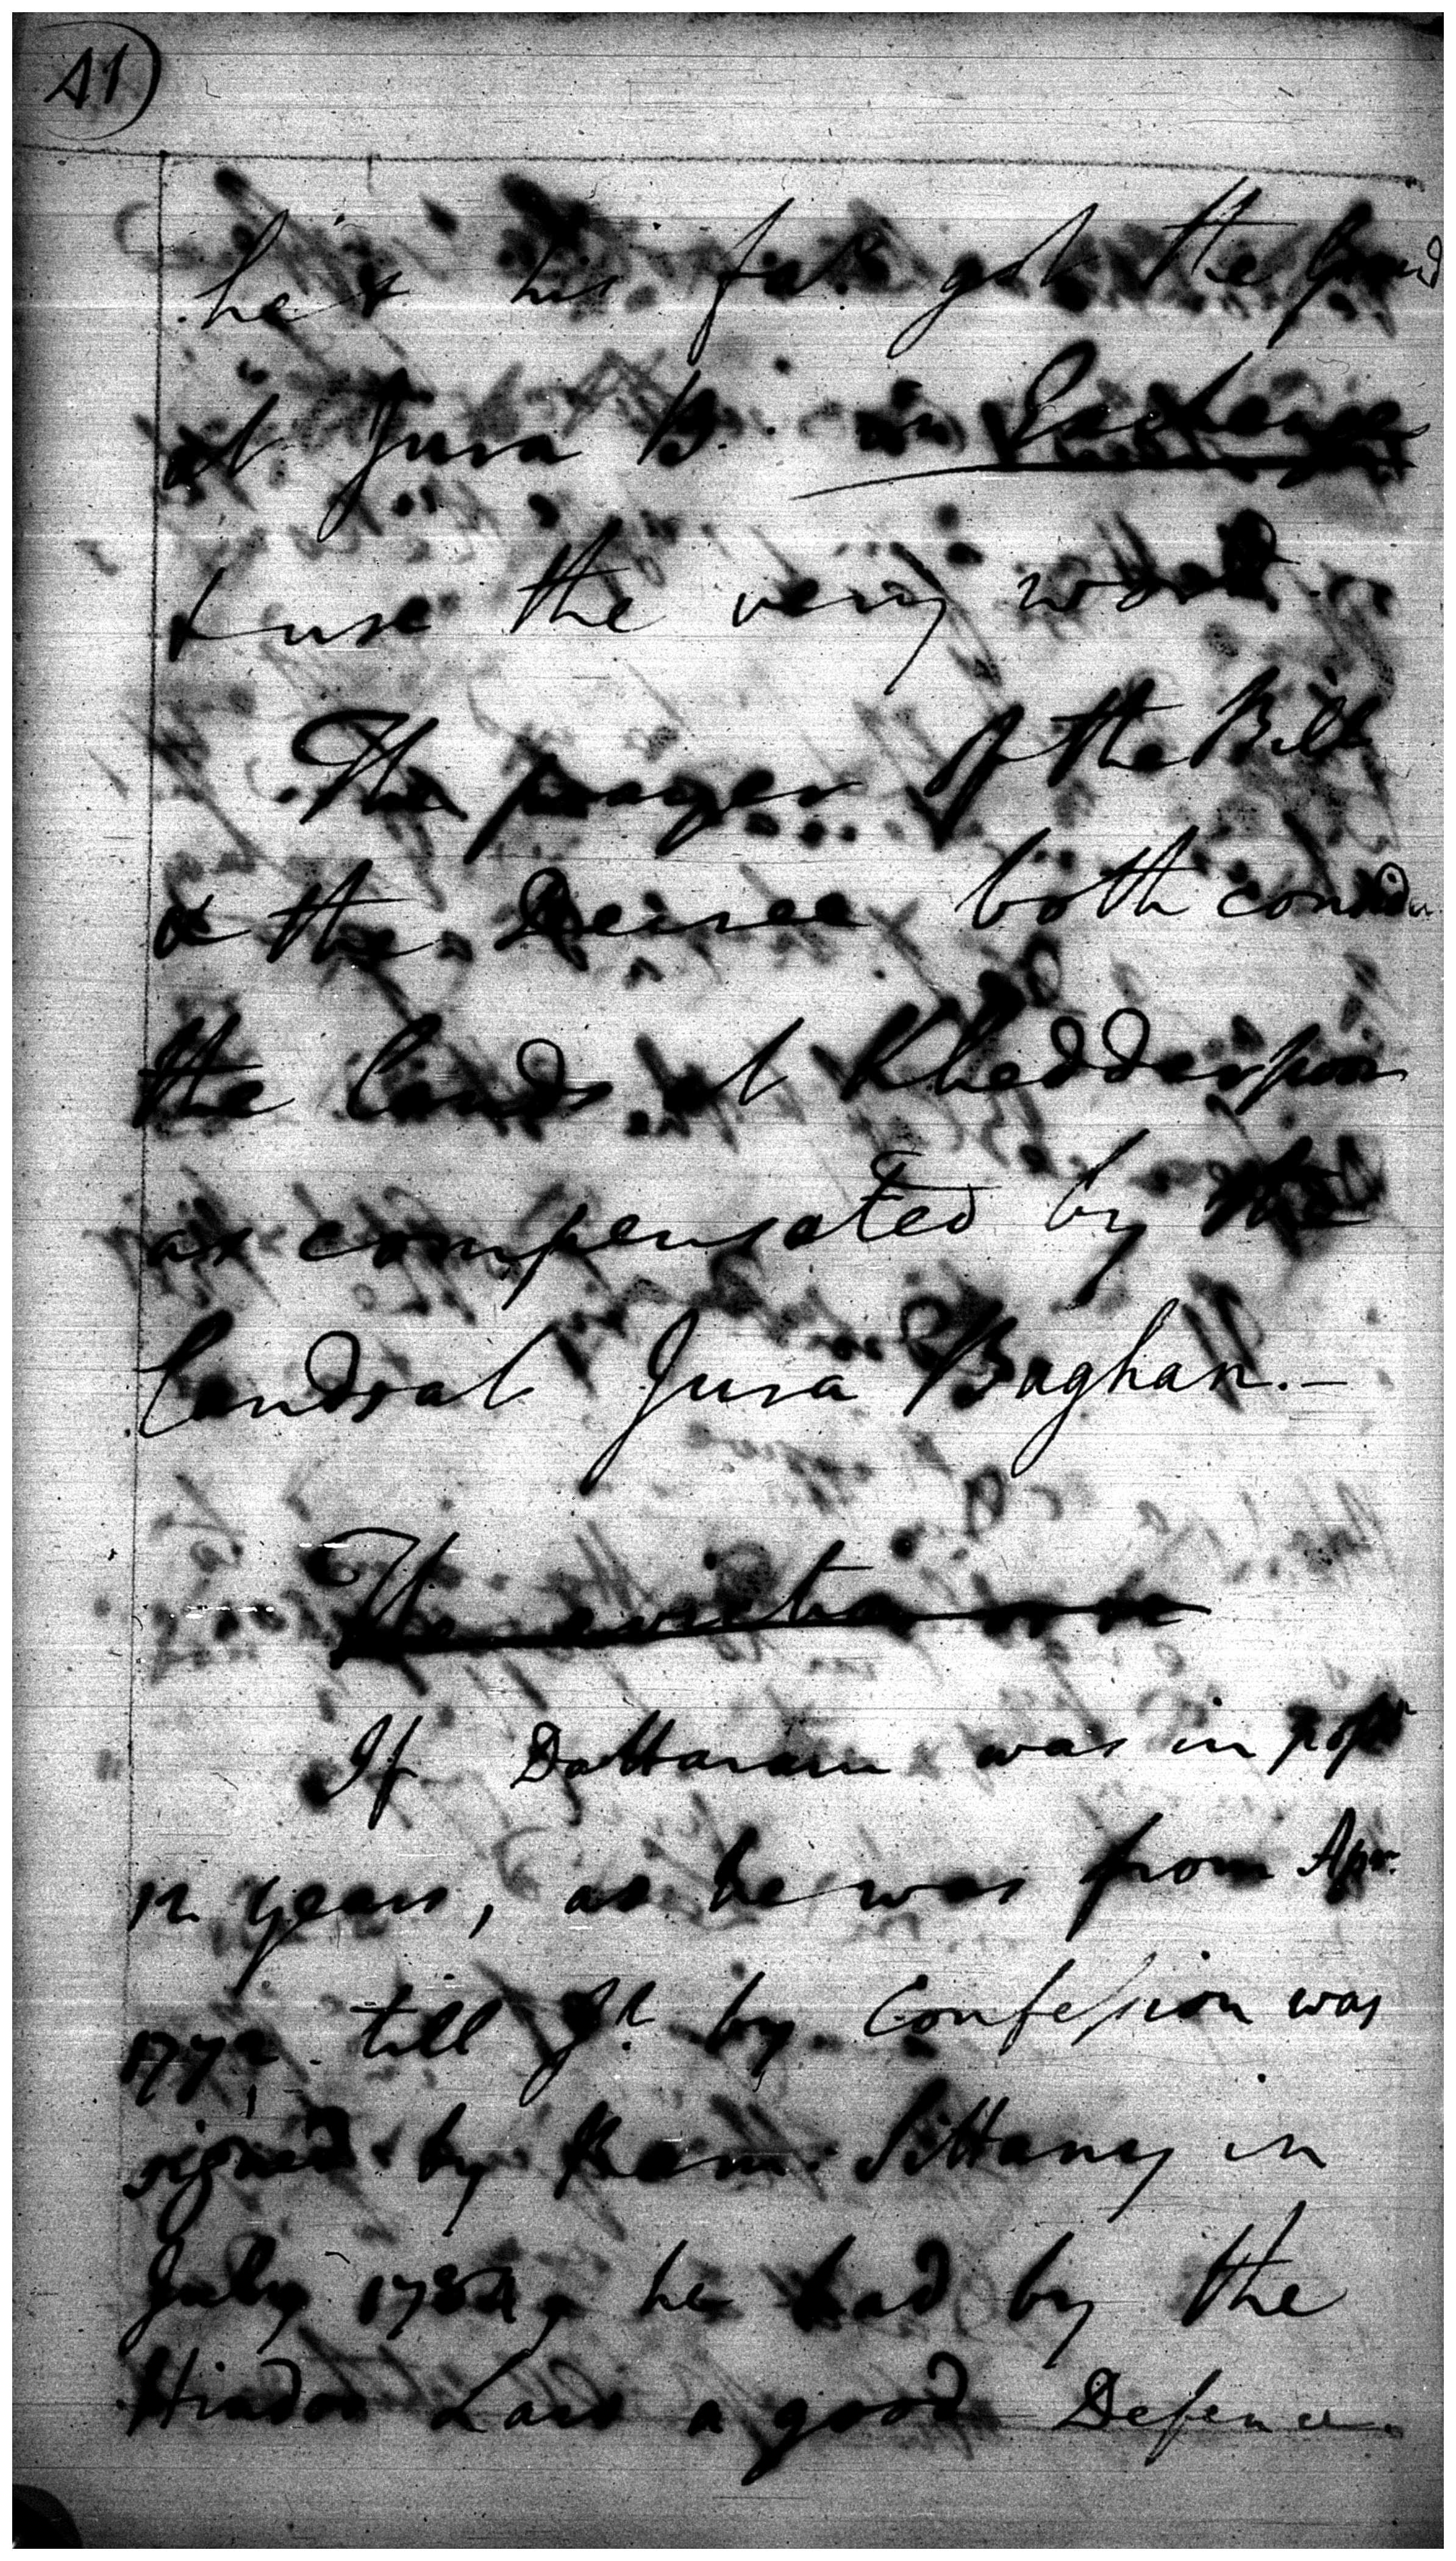 41
he & his far. got the ground
at Jura B. in Exchange
& use the very word.
The prayer of the Bill
& the Decree both consider
the lands at Khedderpore
as compensated by the
lands at Jura Baghan.—
If Dattaram was in poss
12 years, as he was from Apr.
1772 till Jt. by Confession was
signed by Ram Sittany in
July 1784, he had by the
Hindoo Law a good Defence.